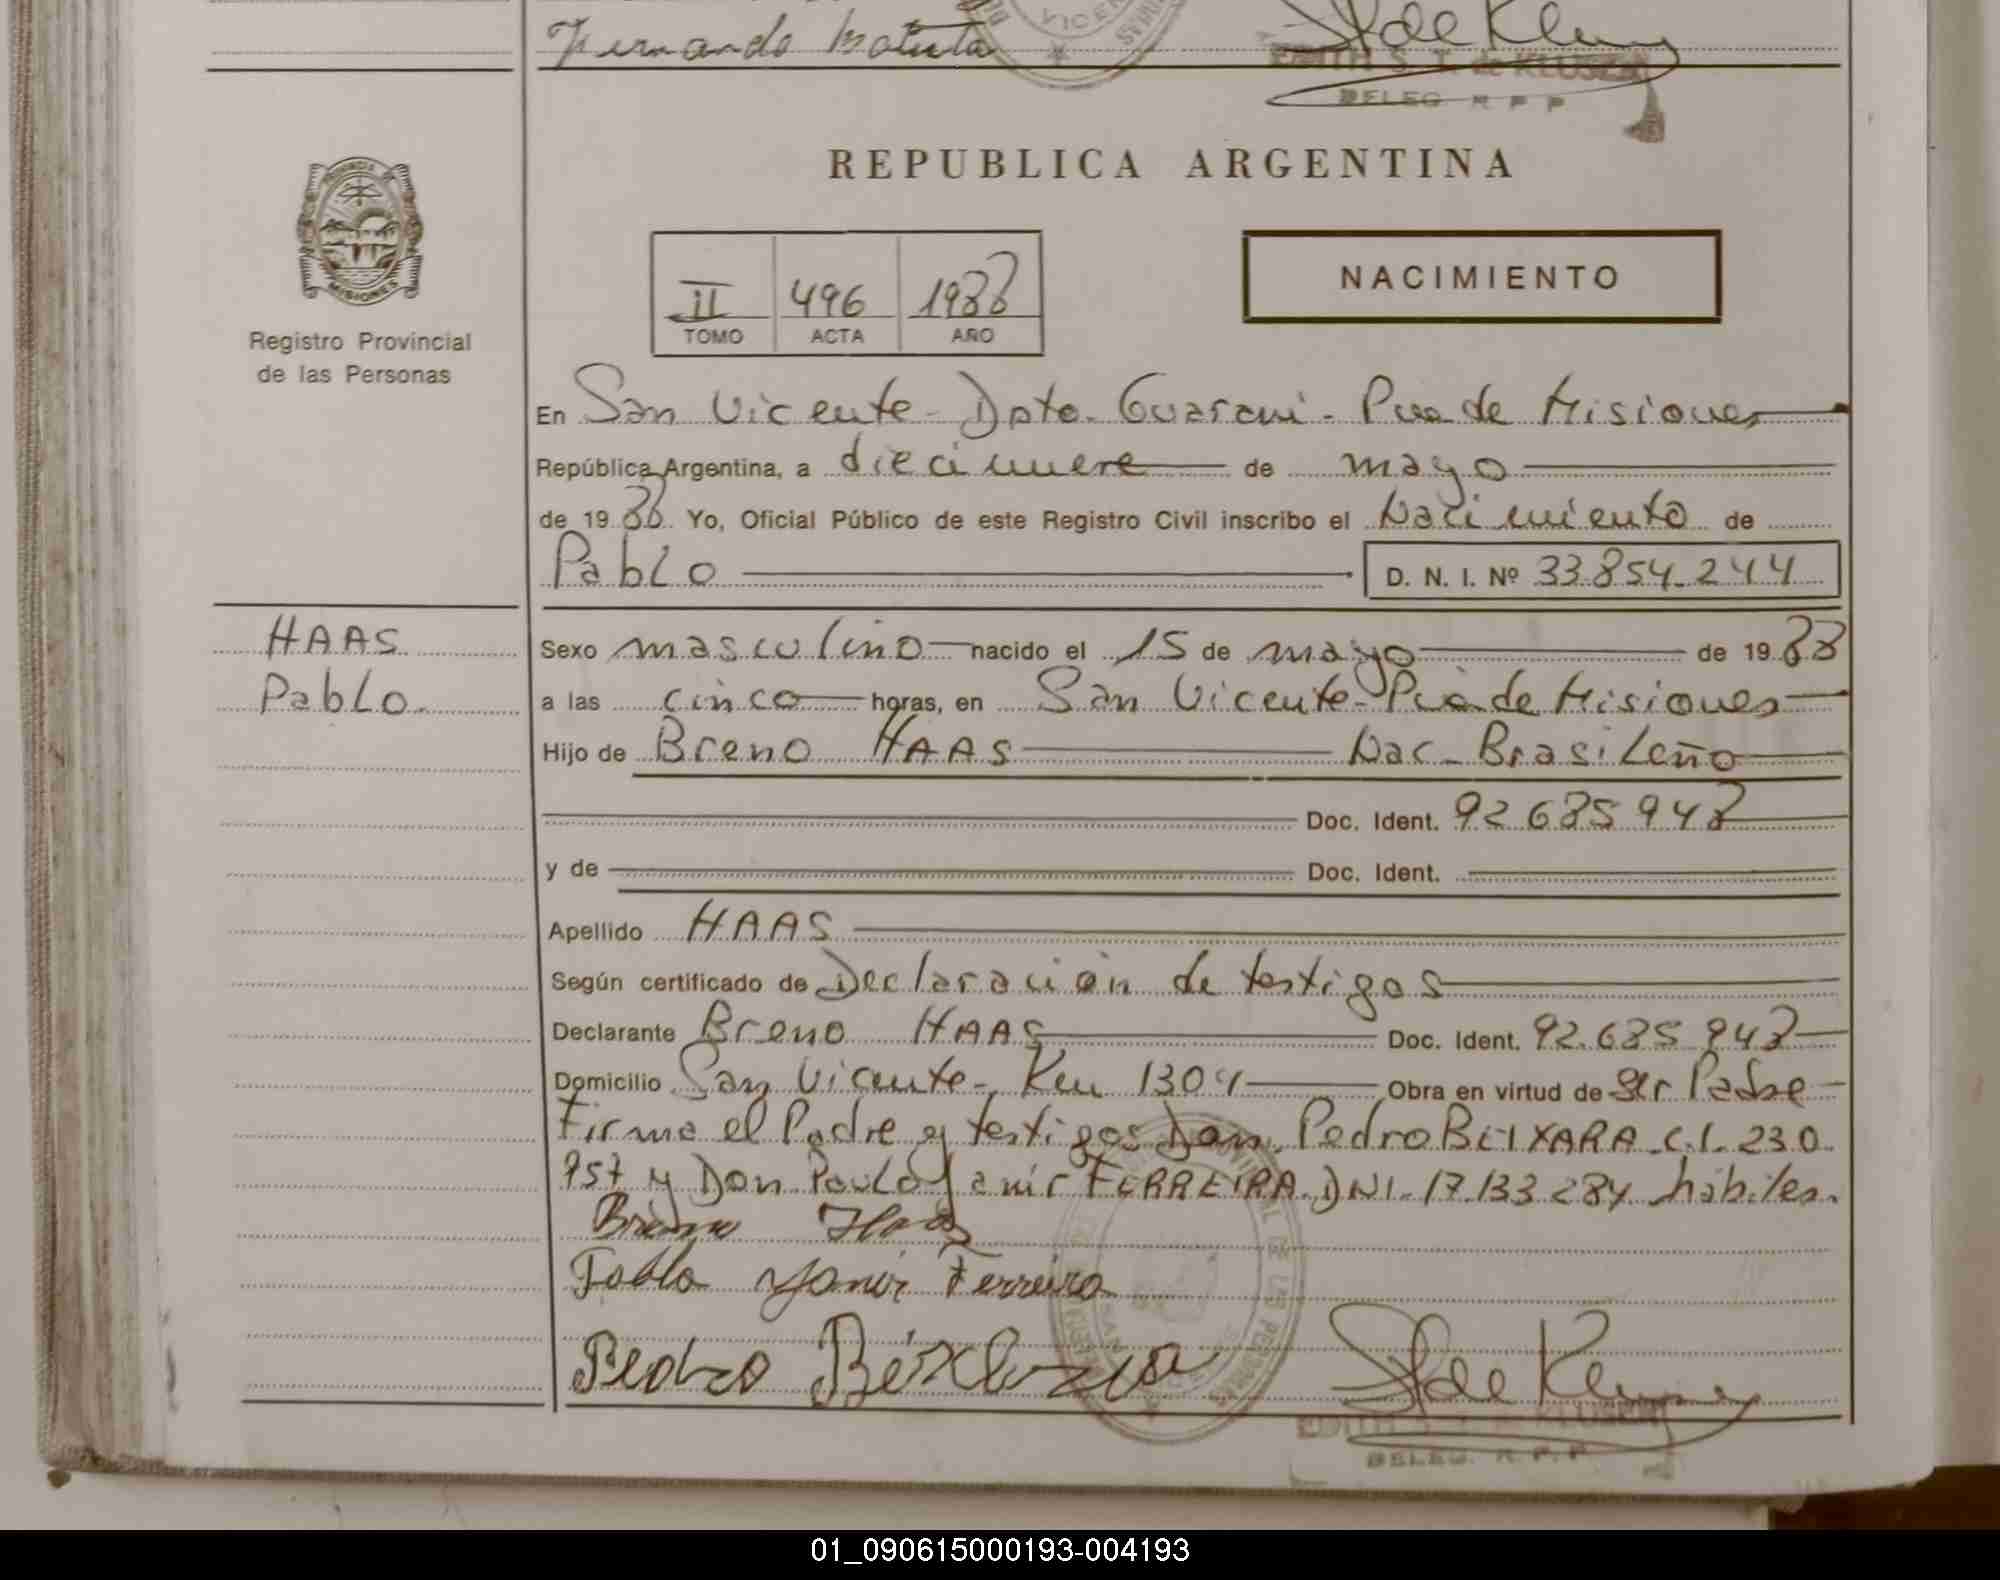 Fernando Batista
VICEN
EDITH S. T. de KLUSEN
DELEG. R P P
REPUBLICA ARGENTINA
PROVINCIA
MISIONES
Registro Provincial
de las Personas
II 496 1988
TOMO ACTA AÑO
NACIMIENTO
En San Vicente - Dpto. Guarani - Pcia de Misiones
República Argentina, a diecinueve de mayo
de 19 88 Yo, Oficial Público de este Registro Civil inscribo el Nacimiento de
Pablo D. N. I. Nº 33.854.244
HAAS
Pablo.
Sexo masculino nacido el 15 de mayo de 19 88
a las cinco horas, en San Vicente - Pcia de Misiones
Hijo de Breno HAAS Nac - Brasileño
Doc. Ident. 92 685 948
y de Doc. Ident.
Apellido HAAS
Según certificado de Declaración de testigos
Declarante Breno HAAS Doc. Ident. 92.685.948
Domicilio San Vicente - Km 1304 Obra en virtud de ser Padre
Firma el Padre y testigos Don Pedro BEIXARA C.I. 230.
957 y Don Paulo Janir FERREIRA DNI. 17.133.284 hábiles.
Breno Haas
Pablo Janir Ferreira
Pedro
EDITH S. T. de KLUSEN
DELEG. R. P. P
01_090615000193-004193